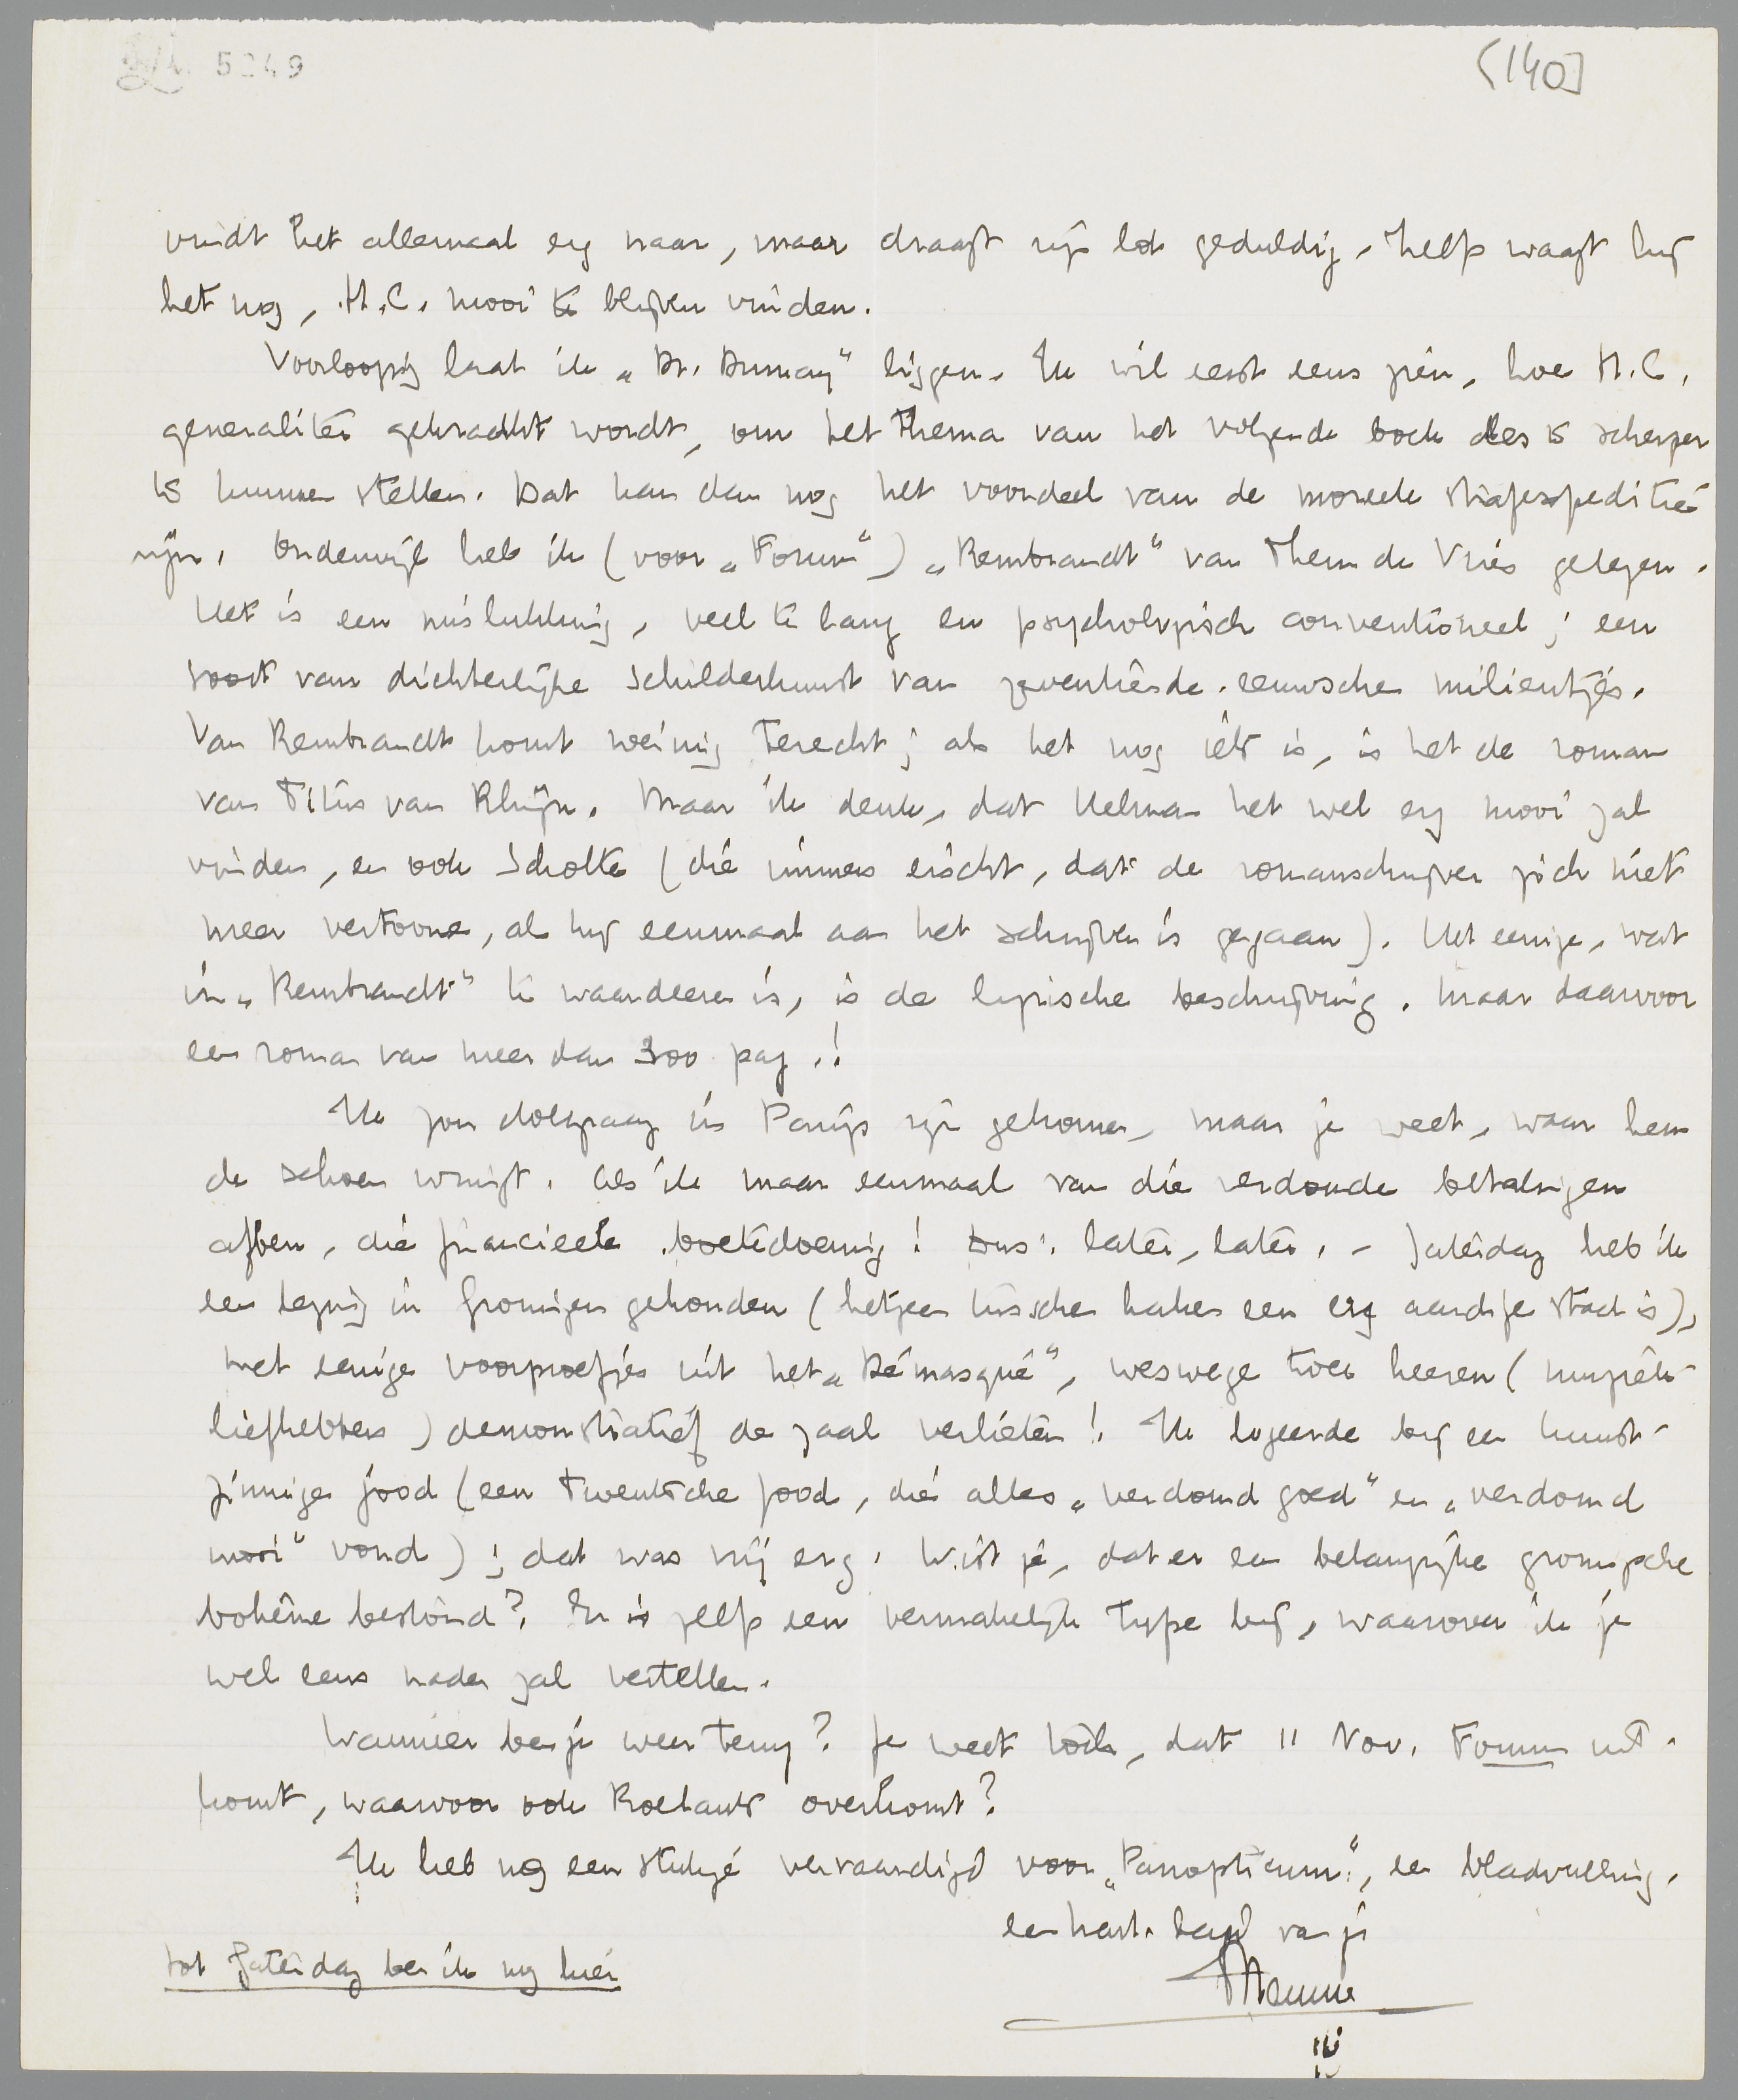 5249
[140]
vindt het allemaal erg naar, maar draagt zijn lot geduldig. Zelfs waagt hij
het nog, H.C. mooi te blijven vinden.
Voorloopig laat ik „Dr. Dumay" liggen. Ik wil eerst eens zien, hoe H.C.
generaliter gekraakt wordt, om het thema van het volgende boek des te scherper
te kunnen stellen. Dat kan dan nog het voordeel van de moreele strafexpeditie
zijn. Onderwijl heb ik (voor „Forum") „Rembrandt" van Theun de Vries gelezen.
Het is een mislukking, veel te lang en psychologisch conventioneel; een
soort van dichterlijke schilderkunst van zeventiende-eeuwsche milieutjes.
Van Rembrandt komt weinig terecht; als het nog iets is, is het de roman
van Titus van Rhijn. Maar ik denk, dat Helman het wel erg mooi zal
vinden, en ook Scholte (die immers eischt, dat de romanschrijver zich niet
meer vertoone, als hij eenmaal aan het schrijven is gegaan). Het eenige, wat
in „Rembrandt" te waardeeren is, is de lyrische beschrijving. Maar daarvoor
een roman van meer dan 300 pag.!
Ik zou dolgraag in Parijs zijn gekomen, maar je weet, waar hem
de schoen wringt. Als ik maar eenmaal van die verdomde betalingen
af ben, die financieele boetedoening! Dus: later, later. – Zaterdag heb ik
een lezing in Groningen gehouden (hetgeen tusschen haken een erg aardige stad is),
met eenige voorproefjes uit het „Démasqué", weswege twee heeren (muziek-
liefhebbers) demonstratief de zaal verlieten! Ik logeerde bij een kunst-
zinnige jood (een Twentsche jood, die alles „verdomd goed" en „verdomd
mooi" vond); dat was vrij erg. Wist je, dat er een belangrijke groningsche
bohême bestond? Er is zelfs een vermakelijk type bij, waarover ik je
wel eens nader zal vertellen.
Wanneer ben je weer terug? Je weet toch, dat 11 Nov. Forum uit-
komt, waarvoor ook Roelants overkomt?
Ik heb nog een stukje vervaardigd voor „Panopticum", een bladvulling.
een hart. hand van je
Menno
tot Zaterdag ben ik nog hier